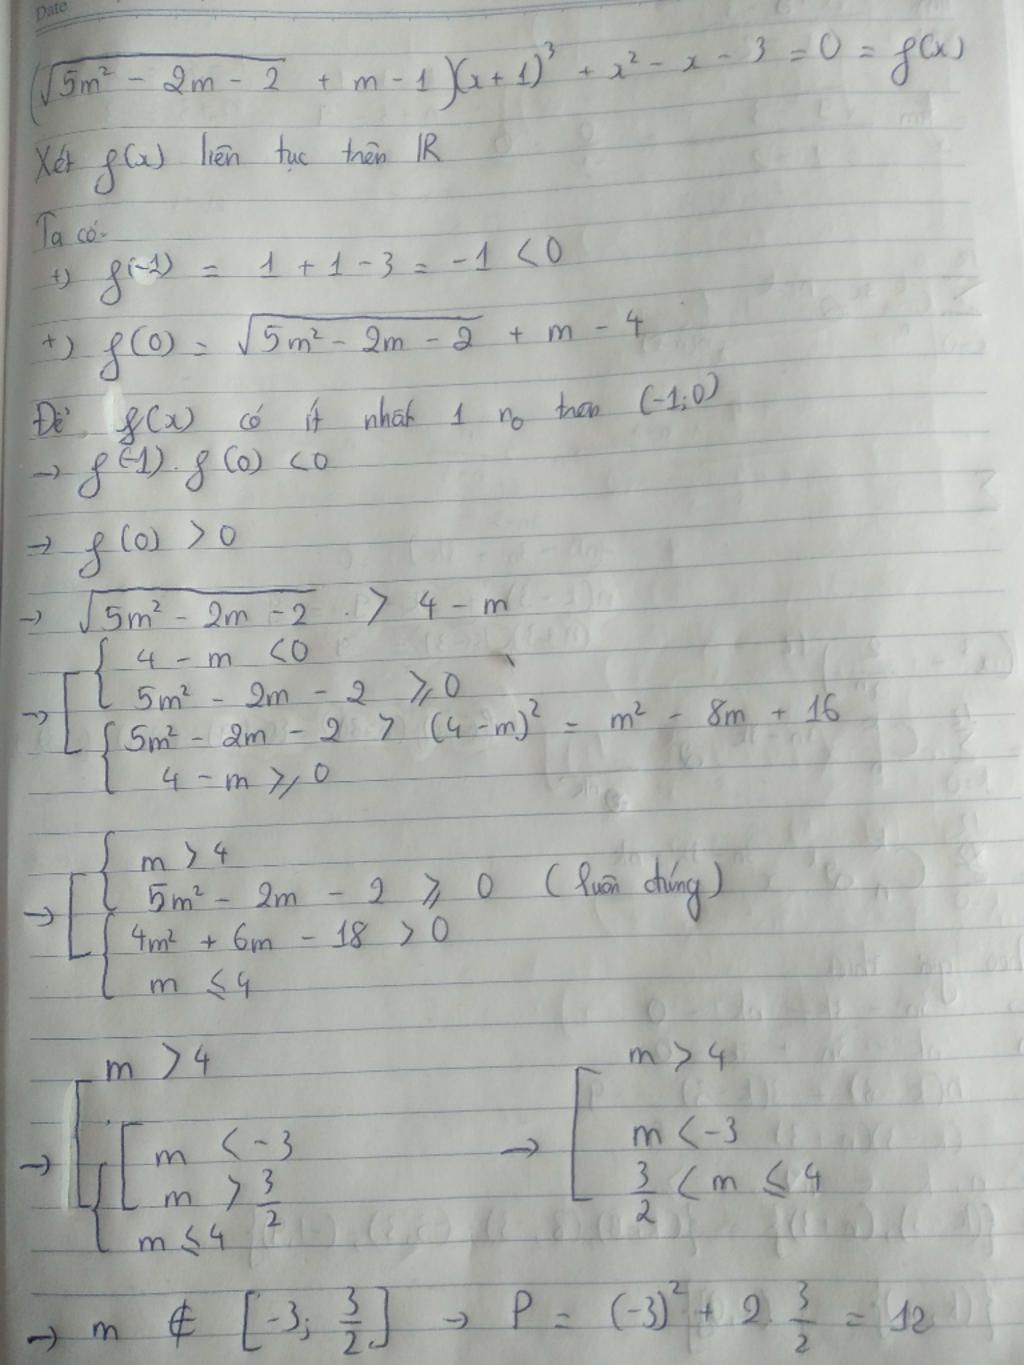 Date
(√(5m² - 2m - 2) + m - 1)(x + 1)³ + x² - x - 3 = 0 = f(x)
Xét f(x) liên tục trên IR
Ta có:
+) f(-1) = 1 + 1 - 3 = -1 < 0
+) f(0) = √(5m² - 2m - 2) + m - 4
Để f(x) có ít nhất 1 no trên (-1;0)
→ f(-1). f(0) < 0
→ f(0) > 0
→ √(5m² - 2m - 2) > 4 - m
→ [ { 4 - m < 0
5m² - 2m - 2 ⩾ 0
{ 5m² - 2m - 2 > (4 - m)² = m² - 8m + 16
4 - m ⩾ 0
→ [ { m > 4
5m² - 2m - 2 ⩾ 0 (luôn đúng)
{ 4m² + 6m - 18 > 0
m ⩽ 4
→ [ m > 4
{ [ m < -3
m > 3/2
m ⩽ 4
→ [ m > 4
m < -3
3/2 < m ⩽ 4
→ m ∉ [-3; 3/2] → P = (-3)² + 2. 3/2 = 12